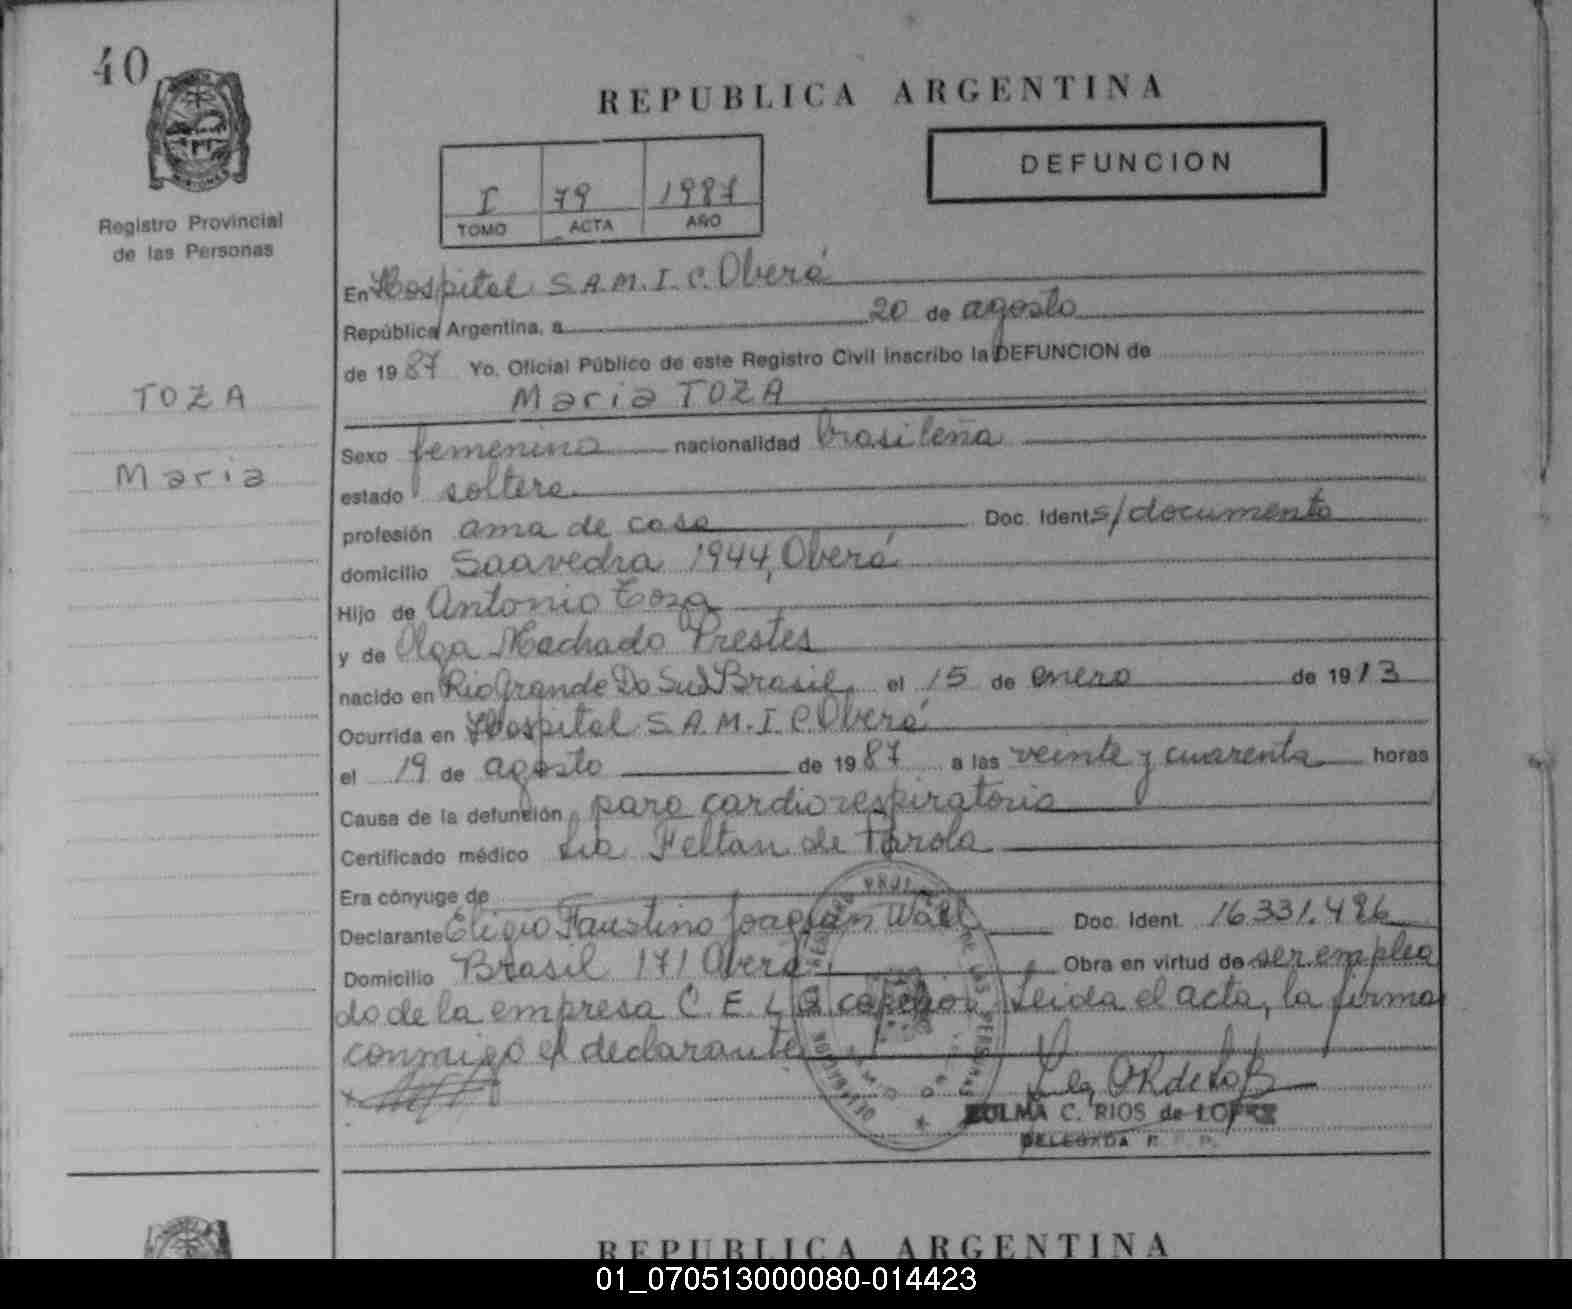 40
REPUBLICA ARGENTINA
DEFUNCION
I 79 1987
TOMO ACTA AÑO
Registro Provincial
de las Personas
En Hospital S.A.M.I.C. Oberá
República Argentina, a 20 de agosto
de 1987 Yo, Oficial Público de este Registro Civil inscribo la DEFUNCION de
TOZA
Maria TOZA
Maria
Sexo femenino nacionalidad brasileña
estado soltera
profesión ama de casa Doc. Ident. s/documento
domicilio Saavedra 1944, Oberá
Hijo de Antonio Toza
y de Olga Machado Prestes
nacido en Rio Grande Do Sul Brasil, el 15 de enero de 1913
Ocurrida en Hospital S.A.M.I.C. Oberá
el 19 de agosto de 1987 a las veinte y cuarenta horas
Causa de la defunción paro cardiorespiratorio
Certificado médico Lia Feltan de Tarola
Era cónyuge de
Declarante Eligio Faustino Joaquin Wall Doc. Ident. 16.331.486
Domicilio Brasil 171 Oberá Obra en virtud de ser emplea
do de la empresa C.E.L.O. Leida el acta, la firma
conmigo el declarante
ZULMA C. RIOS de LOPEZ
DELEGADA R. P. P.
REPUBLICA ARGENTINA
01_070513000080-014423